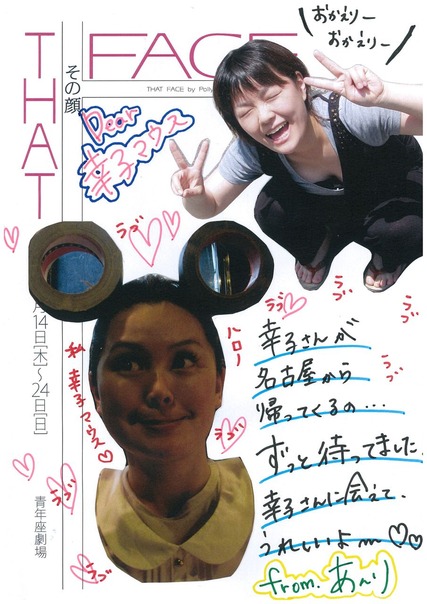 THAT
FACE
その顔
THAT FACE by Polly
おかえりー
おかえりー
Dear
幸子マウス
ラブ
ハロー
私
幸子マウス♡
ラブ
ラブ
ラブ
ラブ
ラブ
ラブ
ラブ
月14日[木]〜24日[日]
青年座劇場
幸子さんが
名古屋から
帰ってくるの…
ずっと待ってました。
幸子さんに会えて、
うれしいよ〜♡♡
from.あんり